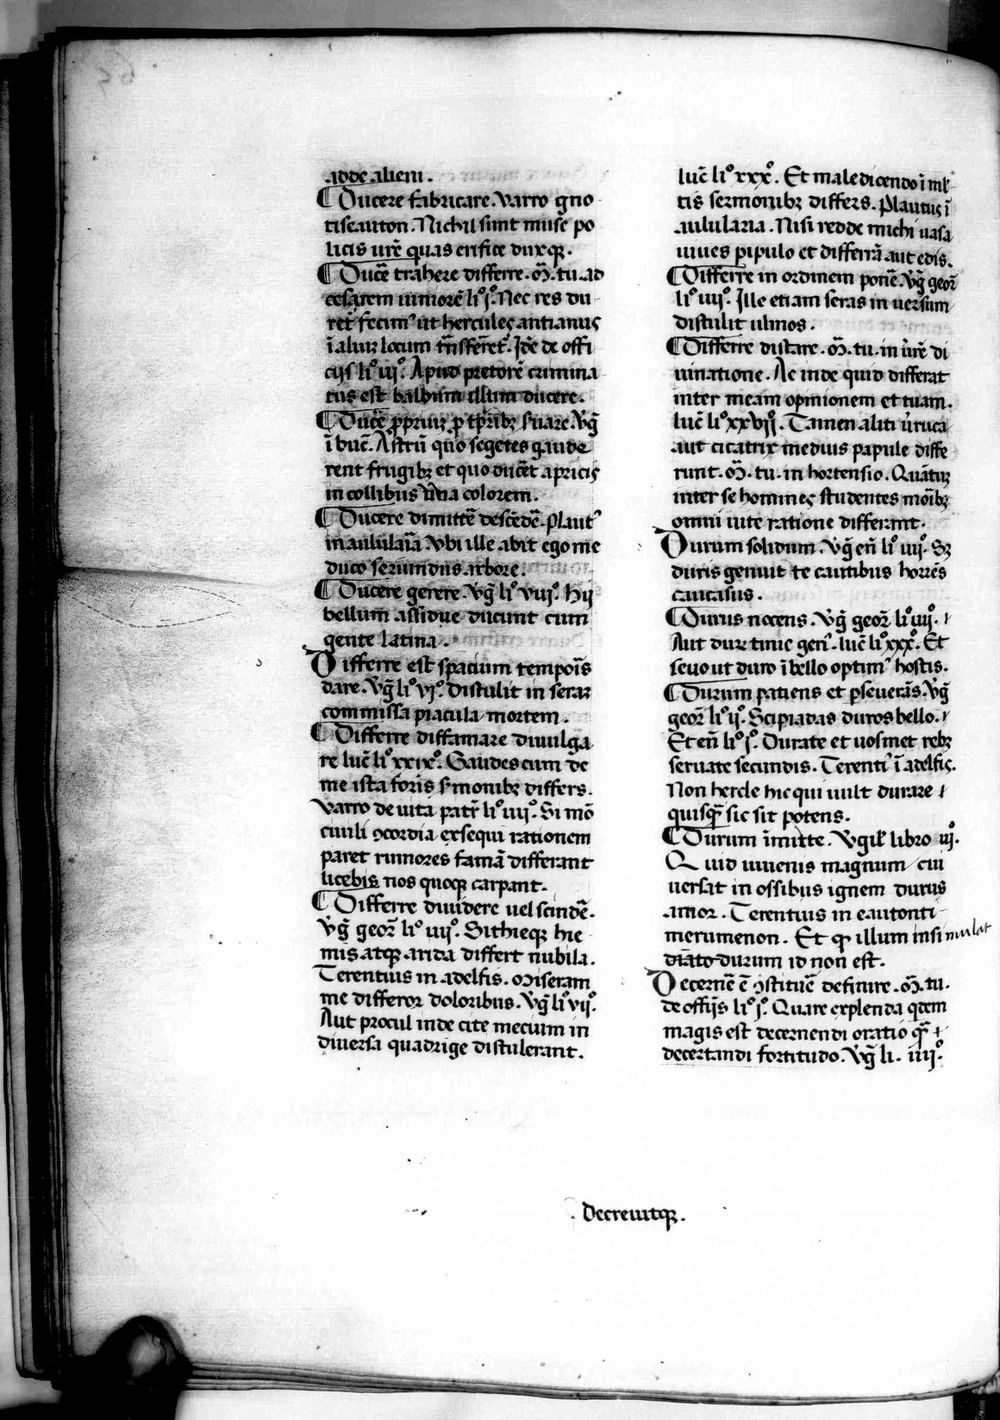 adde alieni.
¶ Ducere fabricare. Varro gno
tiseauton. Nichil sunt muse po
licis urē quas erifice duxqꝫ.
¶ Ducē trahere differre. M̄. tu. ad
cesarem iuniorē liº iº. Nec res du
ret fecimꝰ ut hercules antianus
ī aliuꝫ locum trāsferret. Idē de offi
cijs liº iijº. Apud pretorē crimina
tus est balbum illum ducere.
¶ Ducē ꝓpriuꝫ ꝓ tp̄ribꝫ suare. Vḡ
ī buc̄. Astrū quo segetes gaude
rent frugibꝫ et quo ducēt apricis
in collibus uua colorem.
¶ Ducere dimittē descēdē. Plautꝰ
in aulularia. Vbi ille abit ego me
duco seruꝫ dūs arbore.
¶ Ducere gerere. Vḡ liº viijº. Hij
bellum assidue ducunt cum
gente latina.
Differre est spacium temporis
dare. Vḡ liº viº. Distulit in seraꝫ
commissa piacula mortem.
¶ Differre diffamare diuulga
re luc̄ liº xxixº. Gaudes cum de
me ista foris sermonibꝫ differs.
Varro de uita patr̄ liº iiijº. Si mō
ciuili ꝯcordia exsequi rationem
paret rumores famā differant
licebis nos quoqꝫ carpant.
¶ Differre diuidere uel scindē.
Vḡ georꝫ liº iiijº. Sithieqꝫ hie
mis atqꝫ arida differt nubila.
Terentius in adelfis. Miseram
me differor doloribus. Vḡ liº viijº.
Aut procul inde cite mecium in
diuersa quadrige distulerant.
luc̄ liº xxxº. Et male dicendo ī ml̄
tis sermonibꝫ differs. Plautus ī
aulularia. Nisi redde michi uasa
uiues pipulo et differrā aut edis.
¶ Differre in ordinem ponē. Vḡ georꝫ
liº iiijº. Ille etiam seras in uersum
distulit ulmos.
¶ Differre distare. M̄. tu. in urē di
uinatione. Ac inde quid differat
inter meam opinionem et tuam.
luc̄ liº xxvijº. Tamen aliti uruca
aut cicatrix medius papule diffe
runt. M̄. tu. in hortensio. Quātuꝫ
inter se homines studentes morībꝫ
omni uite ratione differant.
Durum solidum. Vḡ eñ liº iiijº. Sꝫ
duris genuit te cautibus horrēs
caucasus.
¶ Durus nocens. Vḡ georꝫ liº iiijº.
Aut duꝫ tinie genꝰ. luc̄ liº xxxº. Et
seuo ut duro ī bello optimꝰ hostis.
¶ Durum patiens et pseuerās. Vḡ
georꝫ liº ijº. Scipiadas duros bello.
Et eñ liº iº. Durate et uosmet rebꝫ
seruate secundis. Terentiꝰ ī adelfis.
Non hercle hic qui uult durare
quisqꝫ sic sit potens.
¶ Durum īmitte. Vgil̄ libro iijº.
Quid iuuenis magnum cui
uersat in ossibus ignem durus
amor. Terentius in eautonti
merumenon. Et qꝫ illum insimulat
durum id non est.
Decernē ē ꝯstituē definire. M̄. tu.
de offijs liº iº. Quare explenda qdem
magis est decernendi oratio qꝫ
decertandi fortitudo. Vḡ li. iiijº.
. Decreuitqꝫ.